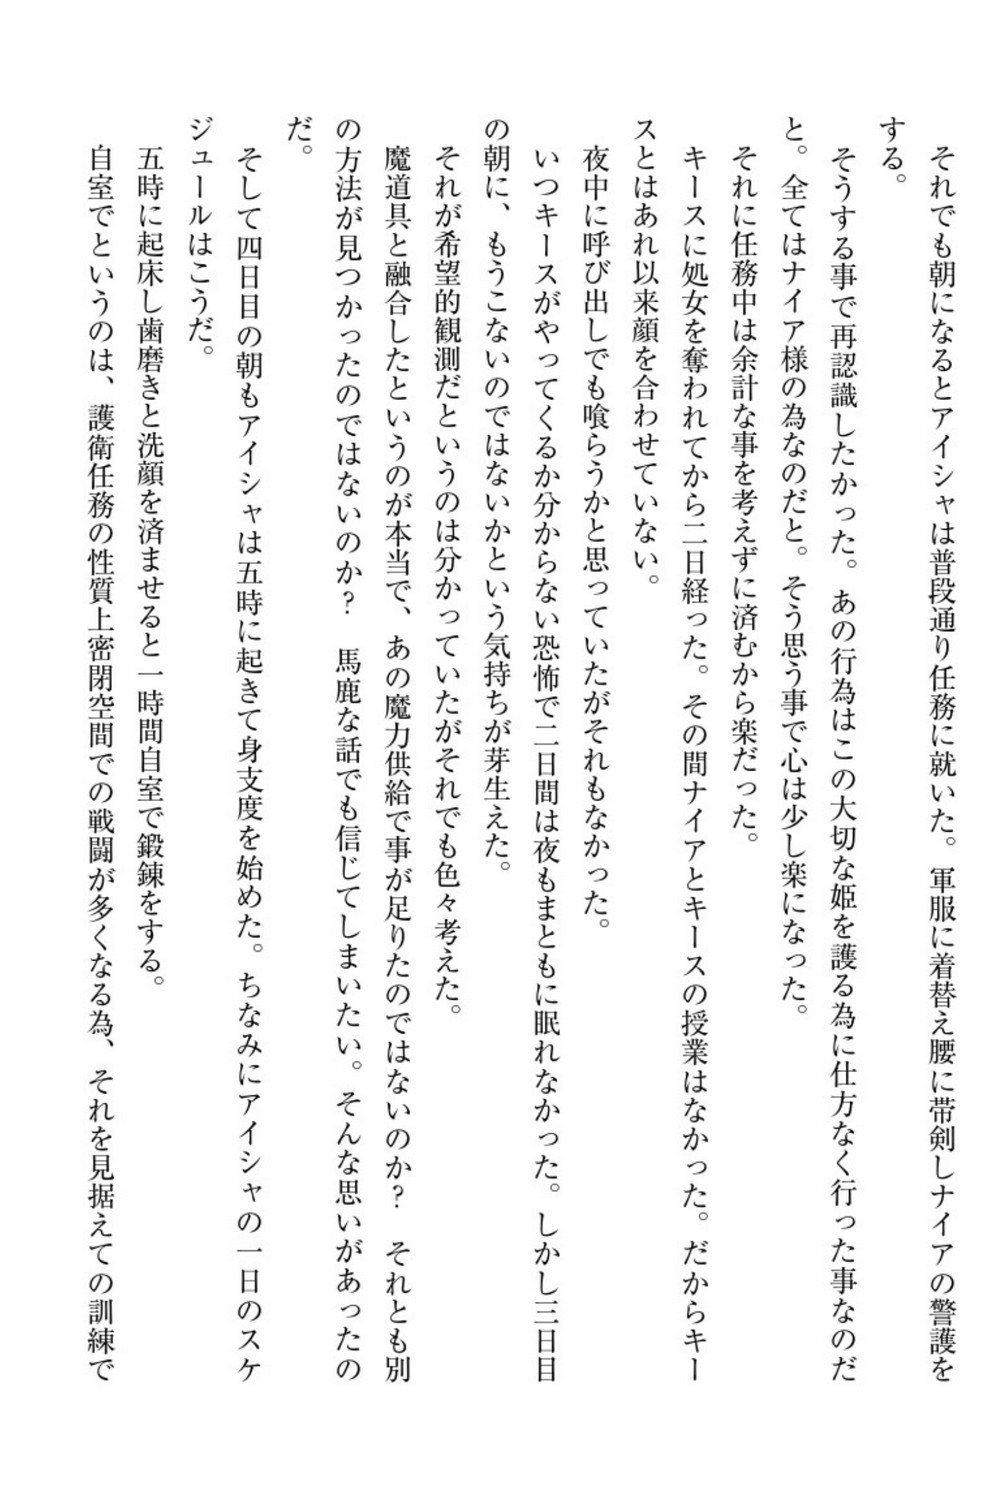 それでも朝になるとアイシャは普段通り任務に就いた。軍服に着替え腰に帯剣しナイアの警護を
する。
そうする事で再認識したかった。あの行為はこの大切な姫を護る為に仕方なく行った事なのだ
と。全てはナイア様の為なのだと。そう思う事で心は少し楽になった。
それに任務中は余計な事を考えずに済むから楽だった。
キースに処女を奪われてから二日経った。その間ナイアとキースの授業はなかった。だからキー
スとはあれ以来顔を合わせていない。
夜中に呼び出しでも喰らうかと思っていたがそれもなかった。
いつキースがやってくるか分からない恐怖で二日間は夜もまともに眠れなかった。しかし三日目
の朝に、もうこないのではないかという気持ちが芽生えた。
それが希望的観測だというのは分かっていたがそれでも色々考えた。
魔道具と融合したというのが本当で、あの魔力供給で事が足りたのではないのか？　それとも別
の方法が見つかったのではないのか？　馬鹿な話でも信じてしまいたい。そんな思いがあったの
だ。
そして四日目の朝もアイシャは五時に起きて身支度を始めた。ちなみにアイシャの一日のスケ
ジュールはこうだ。
五時に起床し歯磨きと洗顔を済ませると一時間自室で鍛錬をする。
自室でというのは、護衛任務の性質上密閉空間での戦闘が多くなる為、それを見据えての訓練で